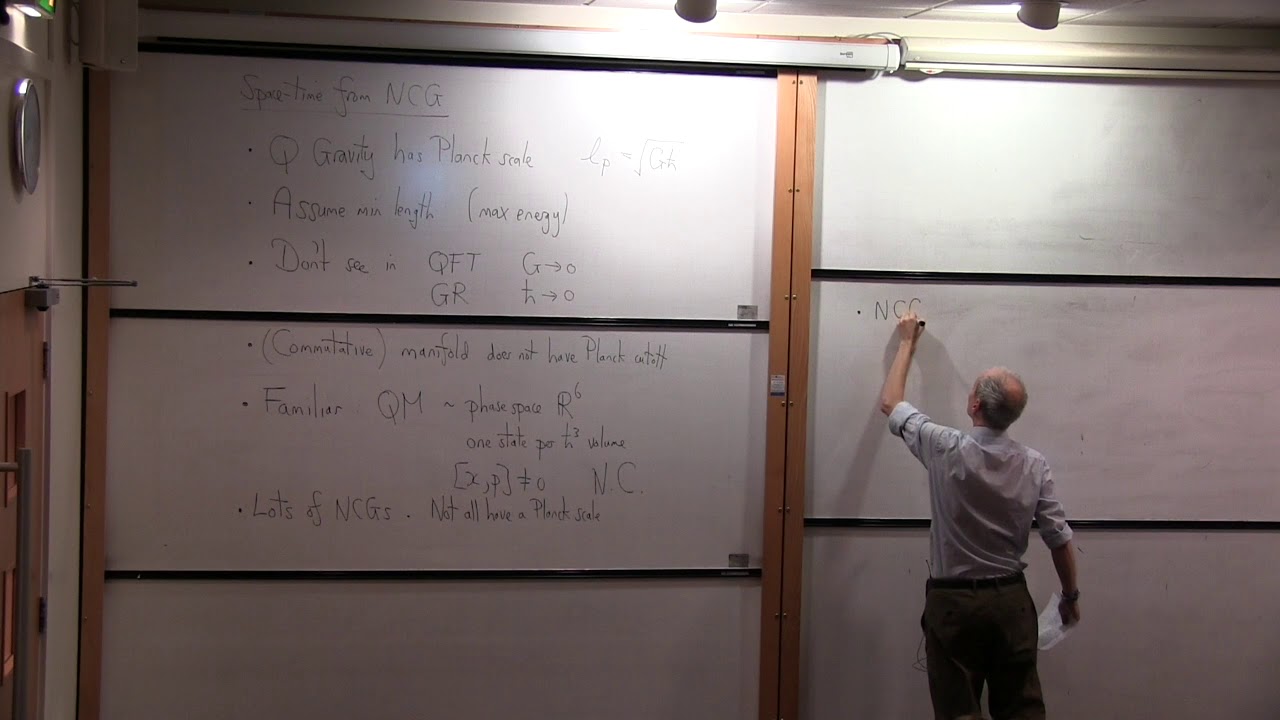 Space-time from NCG
• Q Gravity has Planck scale lₚ = √Għ
• Assume min length (max energy)
• Don't see in QFT G→0
GR ħ→0
• (Commutative) manifold does not have Planck cutoff
• Familiar QM ~ phase space ℝ⁶
one state per ħ³ volume
[x,p] ≠ 0 N.C.
• Lots of NCGs. Not all have a Planck scale
• NCG